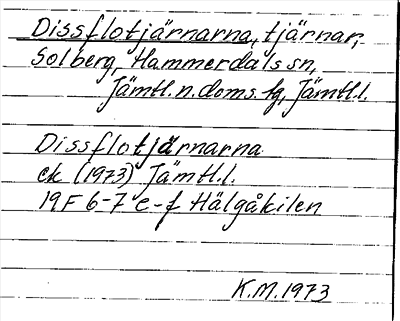 Dissflotjärnarna, tjärnar,
Solberg, Hammerdals sn,
Jämtl.n.doms.tg, Jämtl.l.
Dissflotjärnarna
ek (1973) Jämtl.l.
19F 6-7 e-f Hälgåkilen
K.M.1973